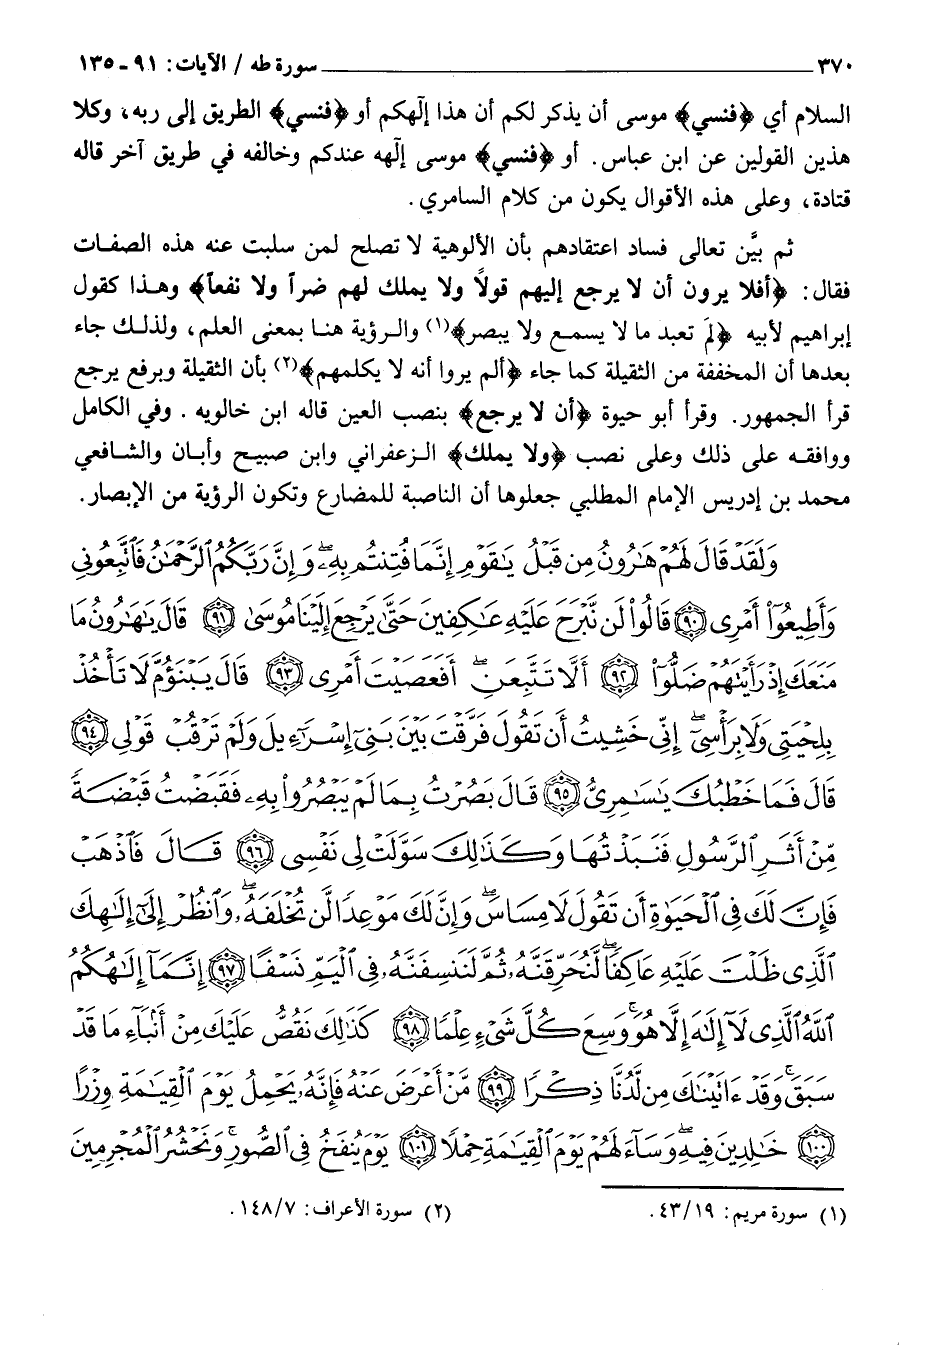 ٣٧٠ سورة طه / الآيات: ٩١ - ١٣٥
السلام أي ﴿فنسي﴾ موسى أن يذكر لكم أن هذا إلٰهكم أو ﴿فنسي﴾ الطريق إلى ربه، وكلا
هذين القولين عن ابن عباس. أو ﴿فنسي﴾ موسى إلٰهه عندكم وخالفه في طريق آخر قاله
قتادة، وعلى هذه الأقوال يكون من كلام السامري.
ثم بيَّن تعالى فساد اعتقادهم بأن الألوهية لا تصلح لمن سلبت عنه هذه الصفات
فقال: ﴿أفلا يرون أن لا يرجع إليهم قولاً ولا يملك لهم ضراً ولا نفعاً﴾ وهذا كقول
إبراهيم لأبيه ﴿لِمَ تعبد ما لا يسمع ولا يبصر﴾(١) والرؤية هنا بمعنى العلم، ولذلك جاء
بعدها أن المخففة من الثقيلة كما جاء ﴿ألم يروا أنه لا يكلمهم﴾(٢) بأن الثقيلة وبرفع يرجع
قرأ الجمهور. وقرأ أبو حيوة ﴿أن لا يرجع﴾ بنصب العين قاله ابن خالويه. وفي الكامل
ووافقه على ذلك وعلى نصب ﴿ولا يملك﴾ الزعفراني وابن صبيح وأبان والشافعي
محمد بن إدريس الإمام المطلبي جعلوها أن الناصبة للمضارع وتكون الرؤية من الإبصار.
وَلَقَدْ قَالَ لَهُمْ هَٰرُونُ مِن قَبْلُ يَٰقَوْمِ إِنَّمَا فُتِنتُم بِهِۦۖ وَإِنَّ رَبَّكُمُ ٱلرَّحْمَٰنُ فَٱتَّبِعُونِى
وَأَطِيعُوٓا۟ أَمْرِى ﴿٩٠﴾ قَالُوا۟ لَن نَّبْرَحَ عَلَيْهِ عَٰكِفِينَ حَتَّىٰ يَرْجِعَ إِلَيْنَا مُوسَىٰ ﴿٩١﴾ قَالَ يَٰهَٰرُونُ مَا
مَنَعَكَ إِذْ رَأَيْتَهُمْ ضَلُّوٓا۟ ﴿٩٢﴾ أَلَّا تَتَّبِعَنِۖ أَفَعَصَيْتَ أَمْرِى ﴿٩٣﴾ قَالَ يَبْنَؤُمَّ لَا تَأْخُذْ
بِلِحْيَتِى وَلَا بِرَأْسِىٓۖ إِنِّى خَشِيتُ أَن تَقُولَ فَرَّقْتَ بَيْنَ بَنِىٓ إِسْرَٰٓءِيلَ وَلَمْ تَرْقُبْ قَوْلِى ﴿٩٤﴾
قَالَ فَمَا خَطْبُكَ يَٰسَٰمِرِىُّ ﴿٩٥﴾ قَالَ بَصُرْتُ بِمَا لَمْ يَبْصُرُوا۟ بِهِۦ فَقَبَضْتُ قَبْضَةً
مِّنْ أَثَرِ ٱلرَّسُولِ فَنَبَذْتُهَا وَكَذَٰلِكَ سَوَّلَتْ لِى نَفْسِى ﴿٩٦﴾ قَالَ فَٱذْهَبْ
فَإِنَّ لَكَ فِى ٱلْحَيَوٰةِ أَن تَقُولَ لَا مِسَاسَۖ وَإِنَّ لَكَ مَوْعِدًا لَّن تُخْلَفَهُۥۖ وَٱنظُرْ إِلَىٰٓ إِلَٰهِكَ
ٱلَّذِى ظَلْتَ عَلَيْهِ عَاكِفًاۖ لَّنُحَرِّقَنَّهُۥ ثُمَّ لَنَنسِفَنَّهُۥ فِى ٱلْيَمِّ نَسْفًا ﴿٩٧﴾ إِنَّمَآ إِلَٰهُكُمُ
ٱللَّهُ ٱلَّذِى لَآ إِلَٰهَ إِلَّا هُوَۚ وَسِعَ كُلَّ شَىْءٍ عِلْمًا ﴿٩٨﴾ كَذَٰلِكَ نَقُصُّ عَلَيْكَ مِنْ أَنۢبَآءِ مَا قَدْ
سَبَقَۚ وَقَدْ ءَاتَيْنَٰكَ مِن لَّدُنَّا ذِكْرًا ﴿٩٩﴾ مَّنْ أَعْرَضَ عَنْهُ فَإِنَّهُۥ يَحْمِلُ يَوْمَ ٱلْقِيَٰمَةِ وِزْرًا
﴿١٠٠﴾ خَٰلِدِينَ فِيهِۖ وَسَآءَ لَهُمْ يَوْمَ ٱلْقِيَٰمَةِ حِمْلًا ﴿١٠١﴾ يَوْمَ يُنفَخُ فِى ٱلصُّورِۚ وَنَحْشُرُ ٱلْمُجْرِمِينَ
(١) سورة مريم: ٤٣/١٩. (٢) سورة الأعراف: ١٤٨/٧.